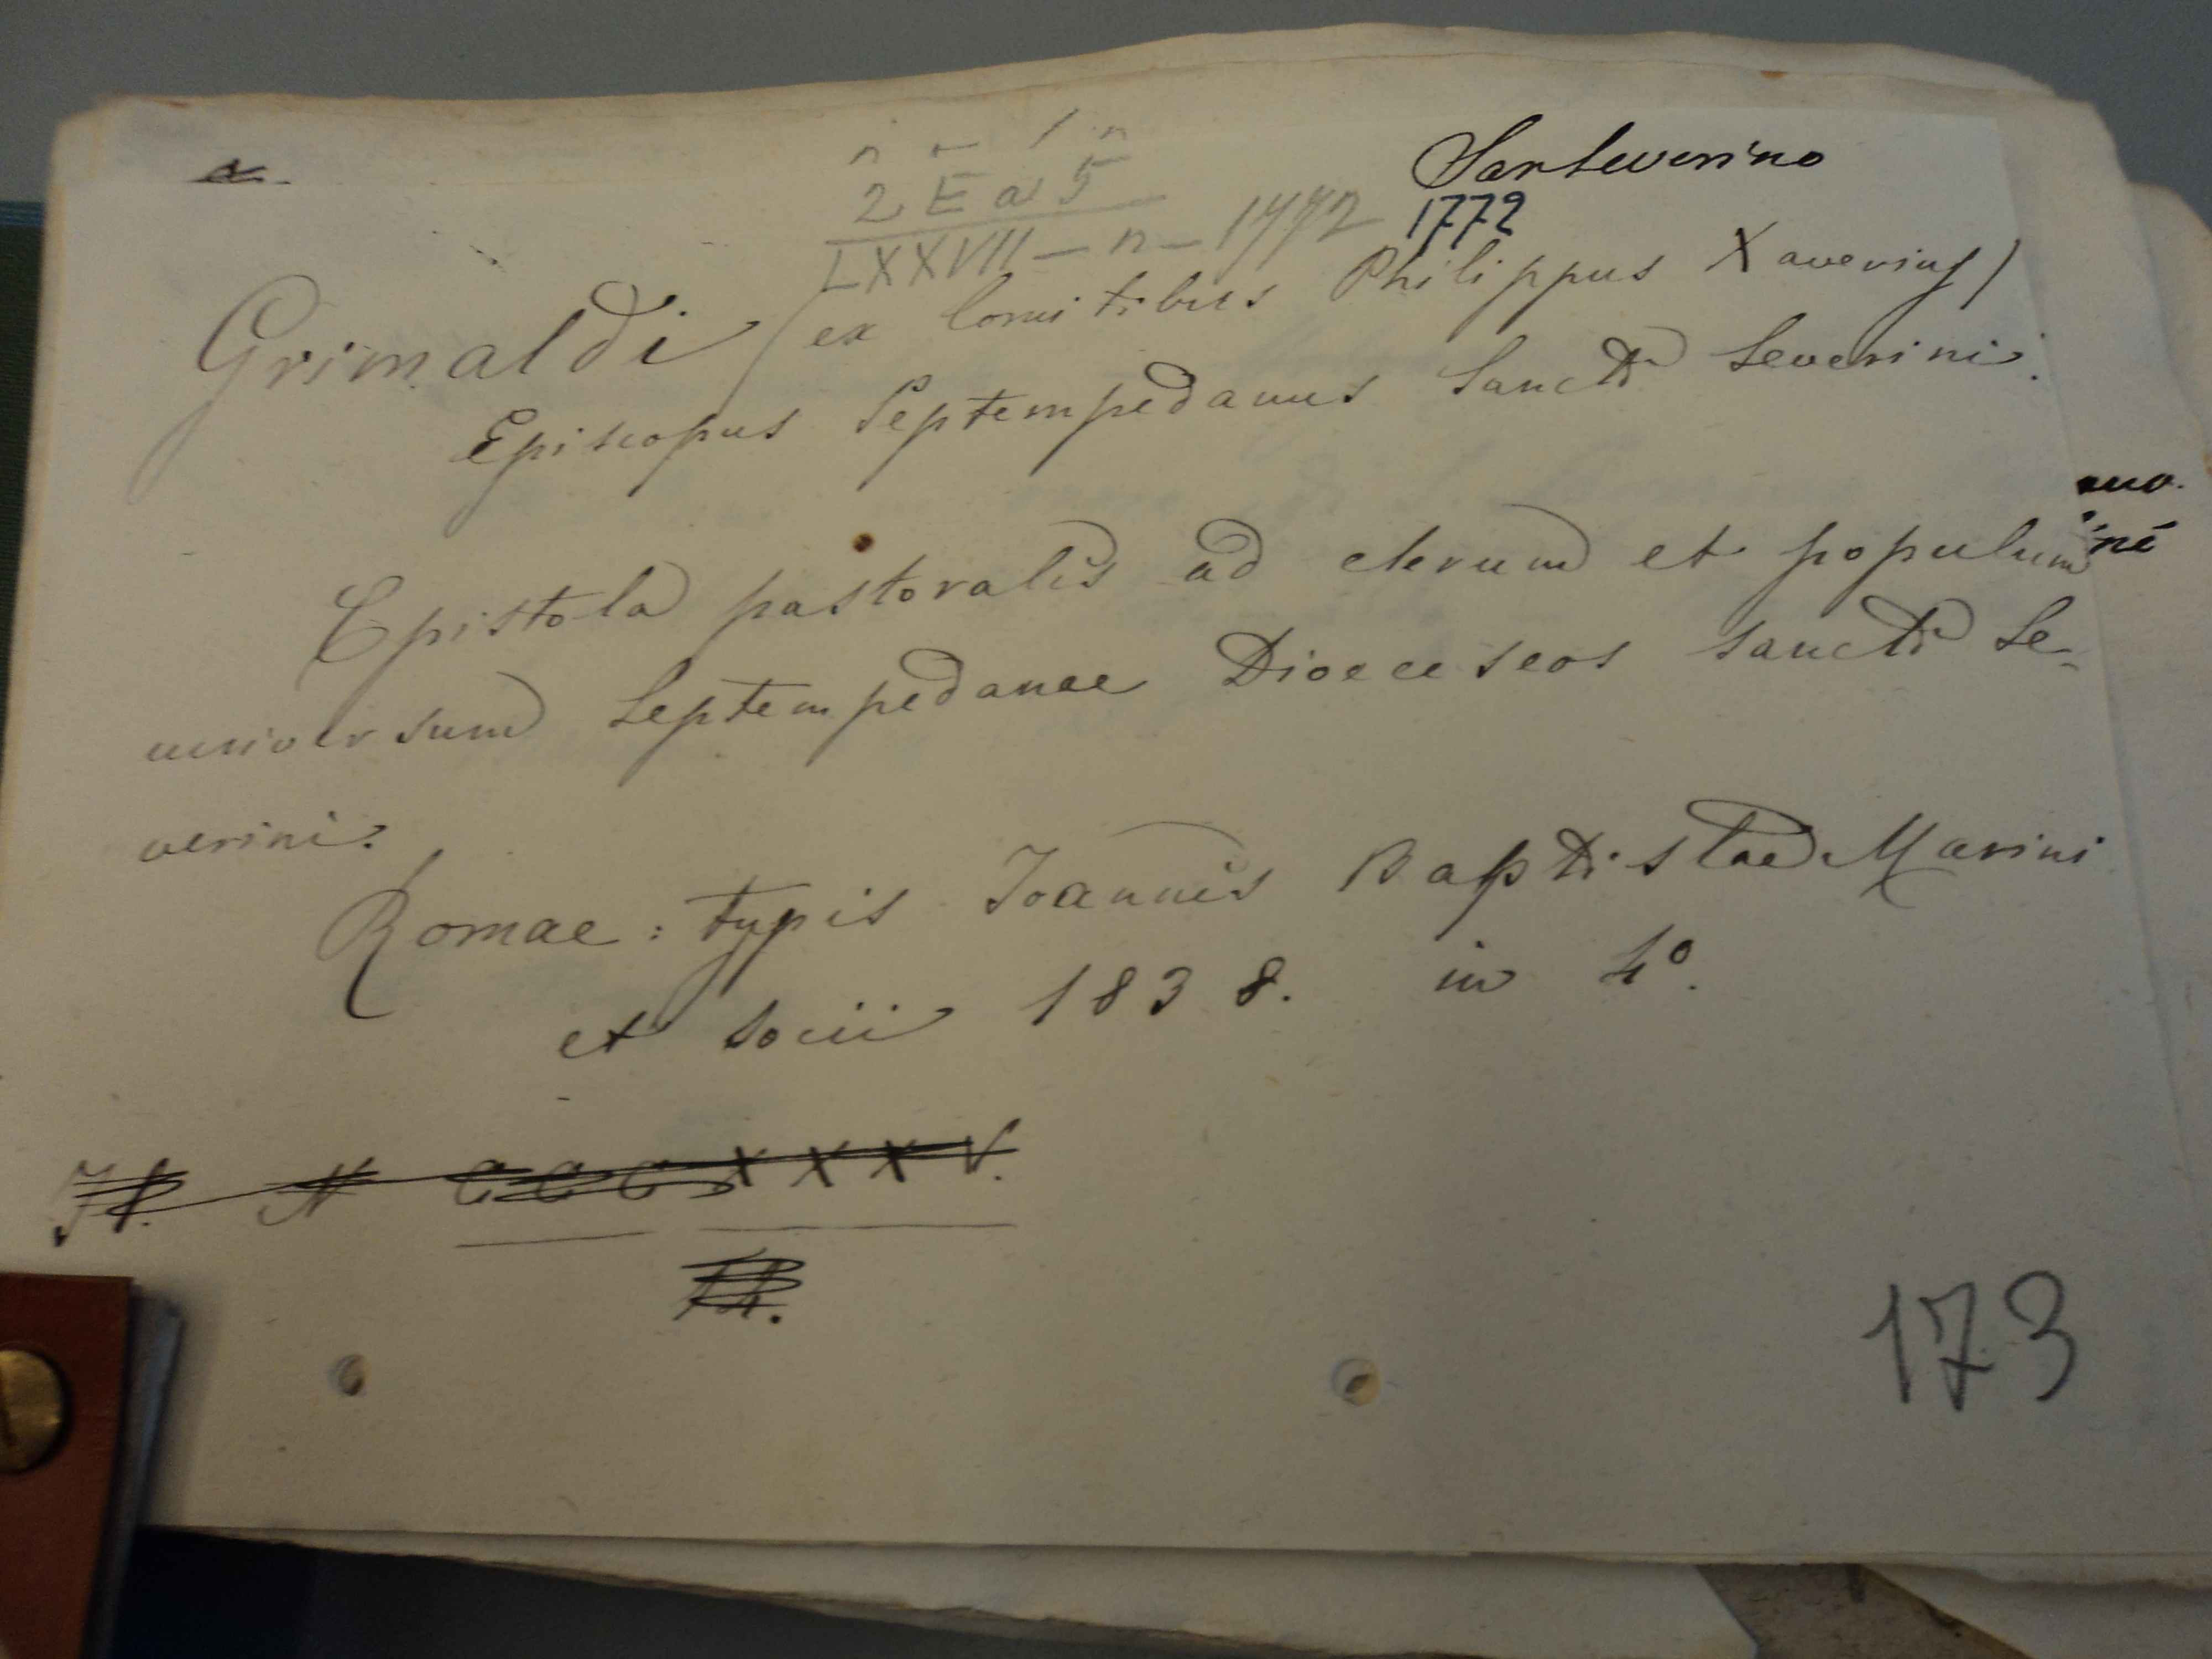 Sanseverino
2 E a 5
1772
LXXVII - n - 1772
Grimaldi (ex Comitibus Philippus Xaverius)
Episcopus Septempedanus Sancti Severini.
Epistola pastoralis ad clerum et populum
universum Septempedanae Dioeceseos Sancti Se-
verini.
Romae: typis Joannis Baptistae Marini
et socii 1838. in 4º.
N CCCXXXV.
173